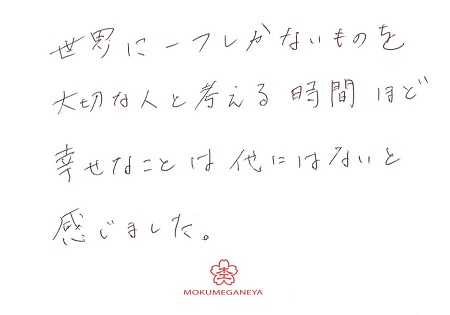 世界に一つしかないものを
大切な人と考える時間ほど
幸せなことは他にはないと
感じました。
杢
MOKUMEGANEYA